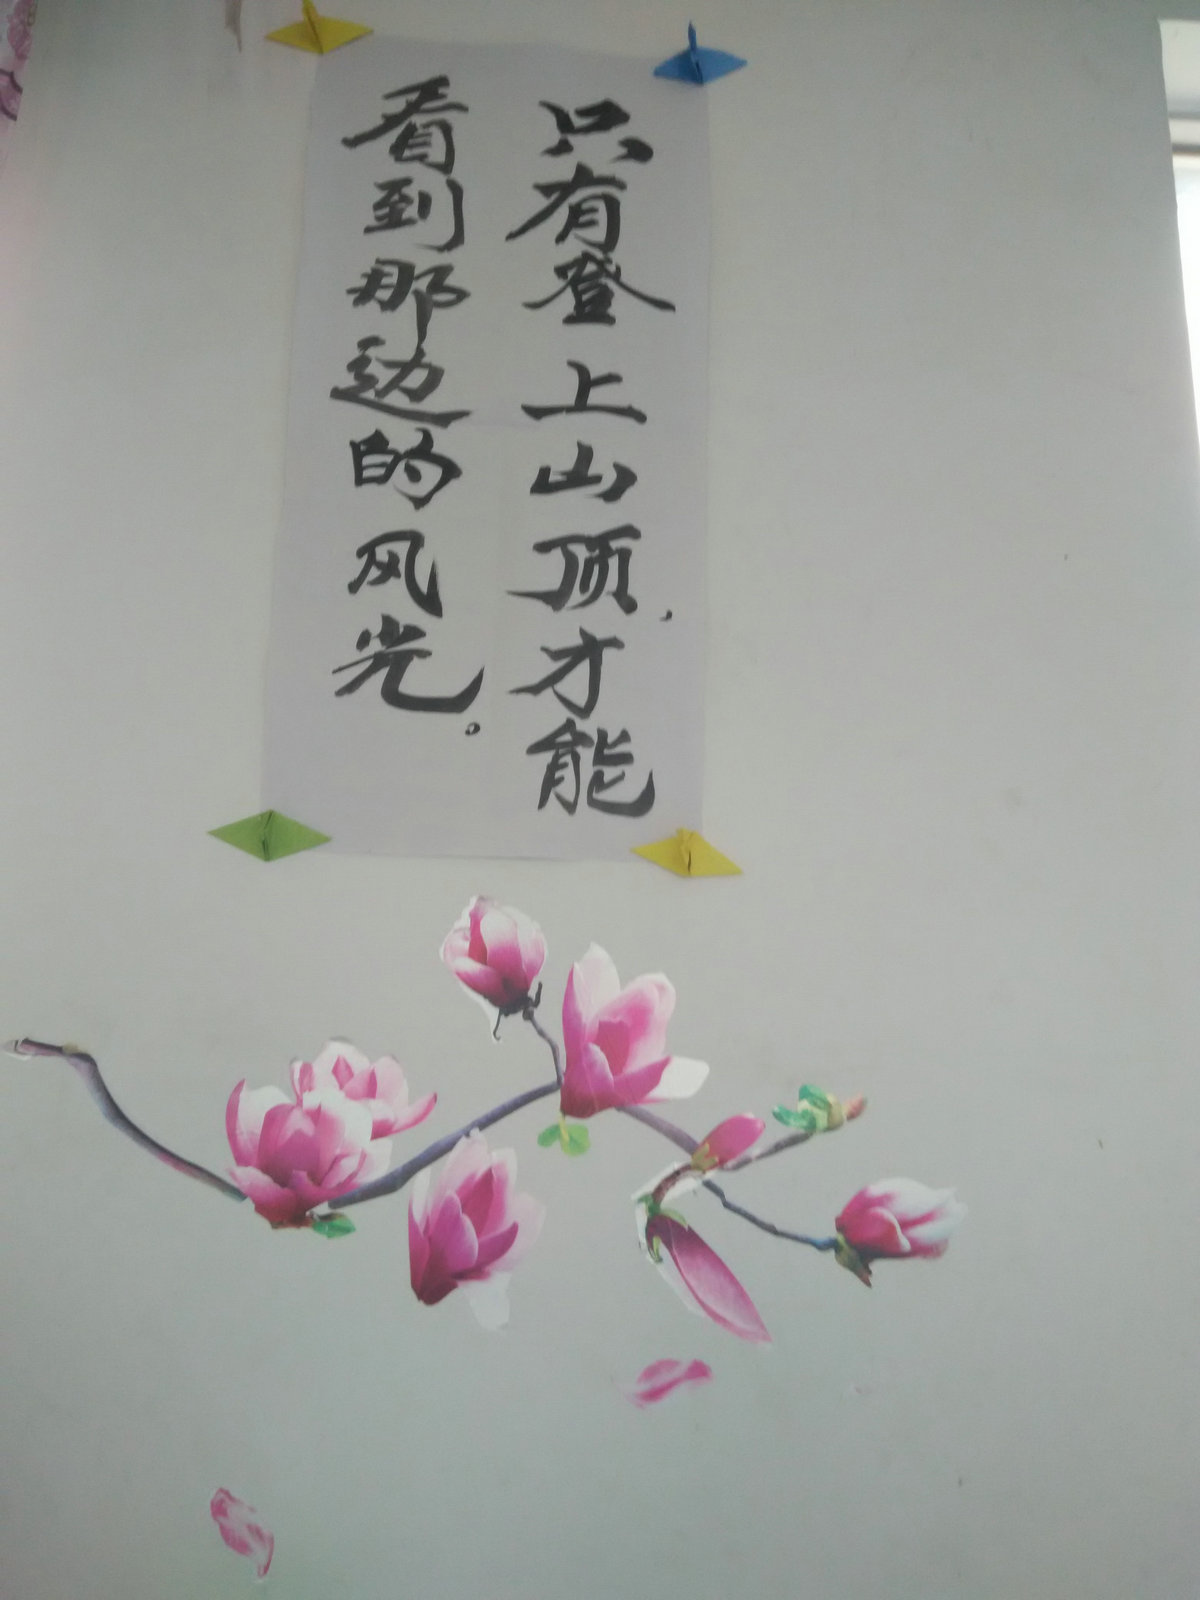 只有登上山顶，才能
看到那边的风光。